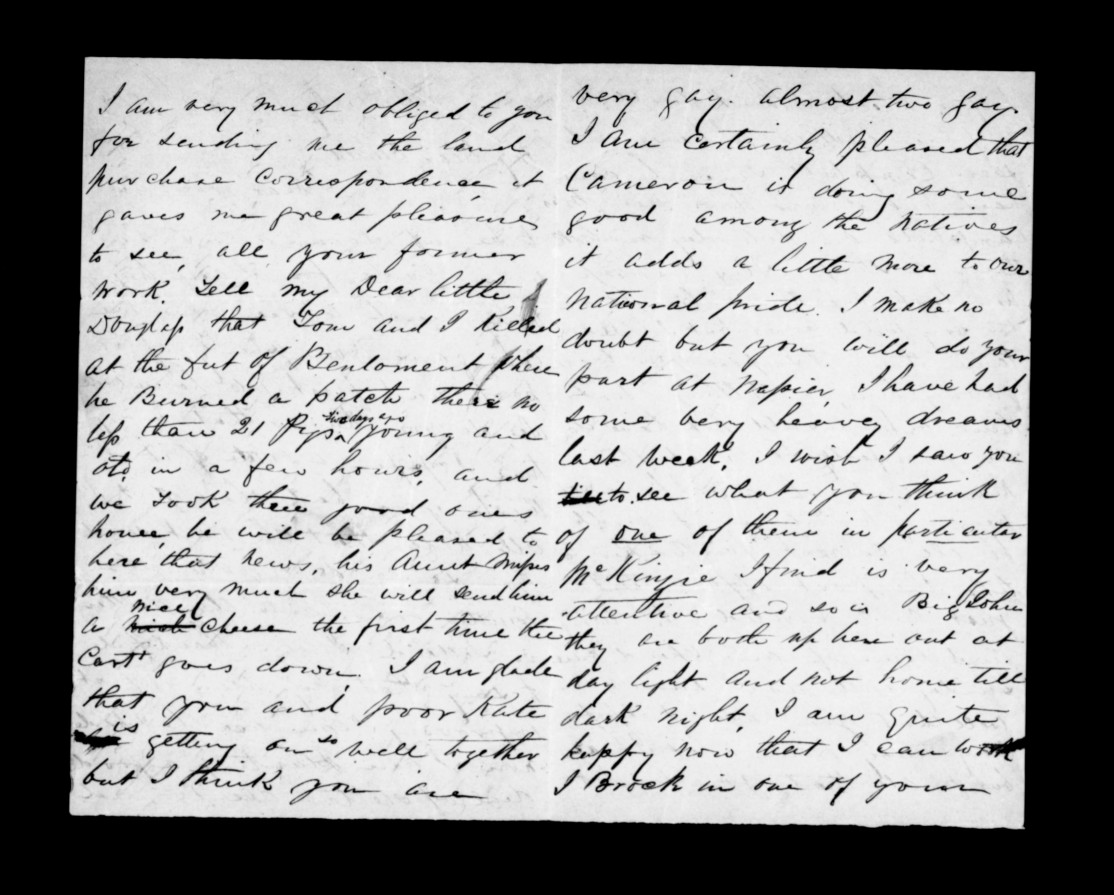 I am very much obliged to you
for sending me the land
purchase correspondence, it
gaves me great pleasure
to see, all your former
work. Tell my Dear little
Douglass that Tom and I killed
at the fut of Benloment where
he Burned a patch there no
less than 21 Pigs two days ago young and
old, in a few hours, and
we took three good ones
home, he will be pleased to
here that news, his Aunt misses
him very much she will send him
a nice cheese the first time the
cart goes down. I am glade
that you and poor Kate
is getting on so well together
but I think you are
very gay. almost two gay.
I am certainly pleased that
Cameron is doing some
good among the natives
it adds a little more to our
national pride. I make no
doubt but you will do your
part at Napier, I have had
some very heavey dreams
last week, I wish I saw you
to see what you think
of one of them in particular
McKinzie I find is very
attentive and so is Big John
they are both up here out at
day light and not home till
dark night, I am quite
happy now that I can work
I Brock in one of your